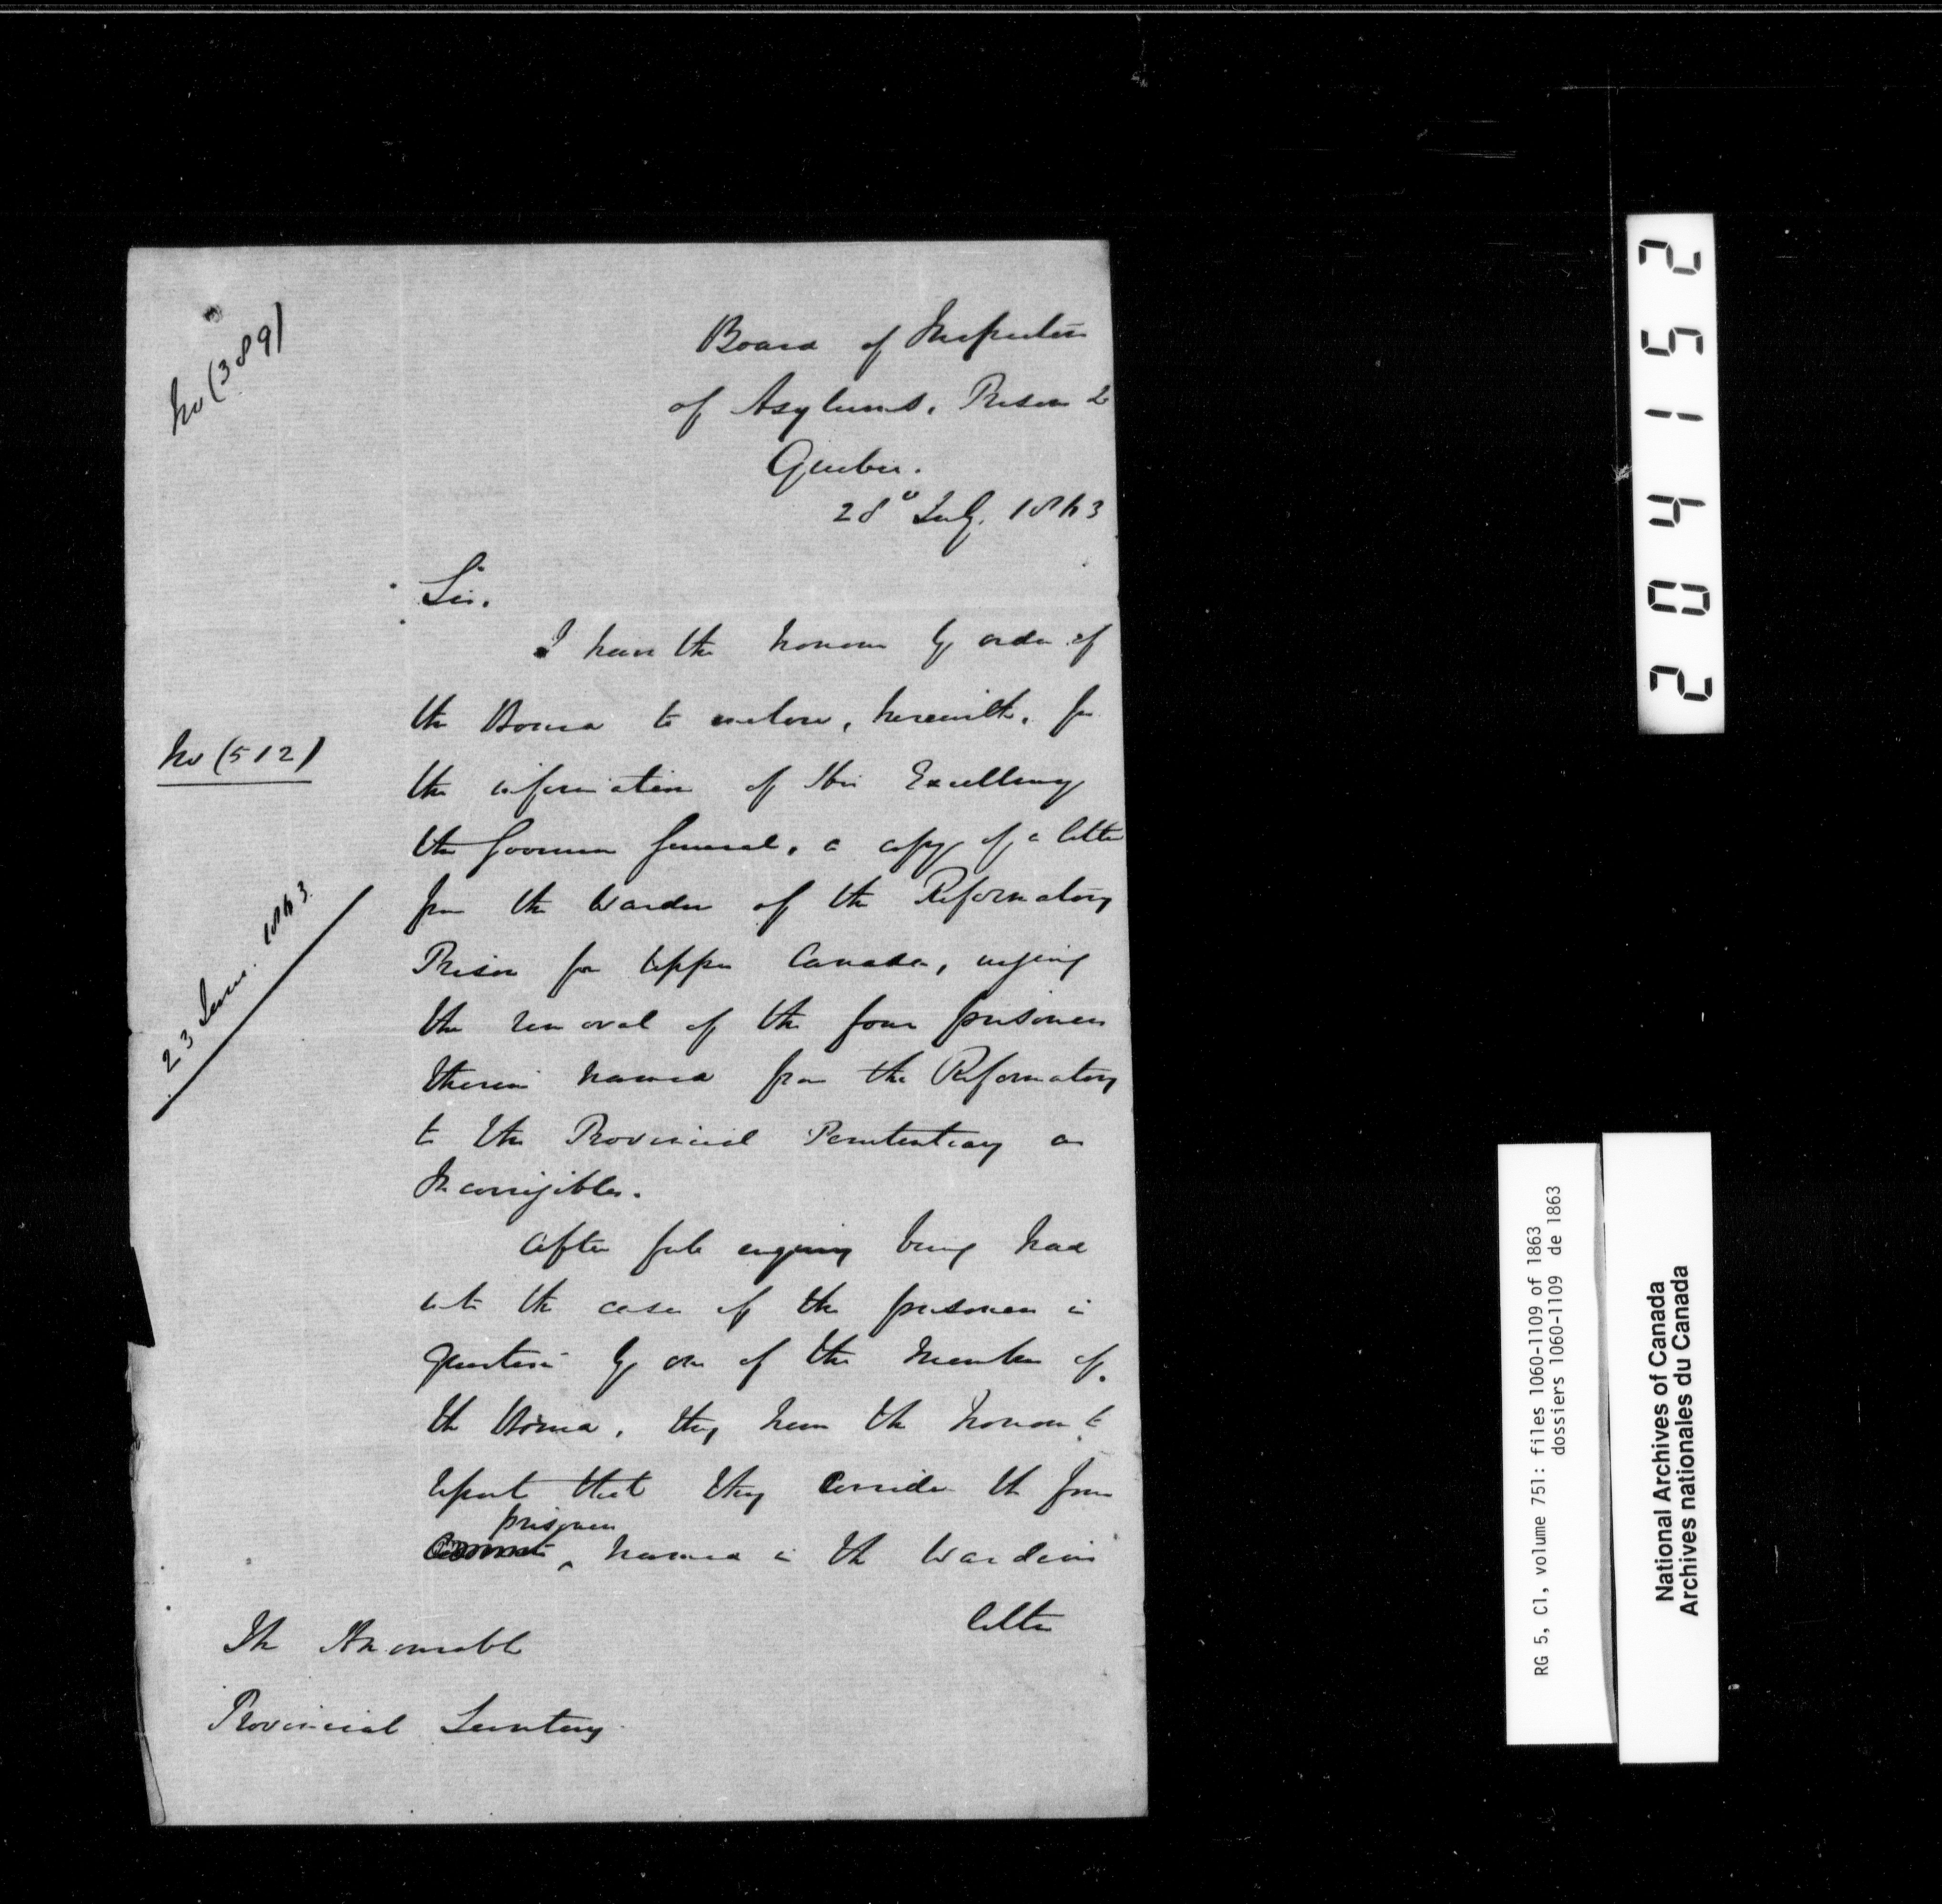 No (389)
Board of Inspectors
of Asylums, Prisons &
Quebec.
28° July. 1863
Sir.
I have the honour by order of
the Board to enclose, herewith, for
No (512)
the information of His Excellency
the Governor General, a copy of a letter
23 June. 1863
from the Warden of the Reformatory
Prison for Upper Canada, urging
the removal of the four prisoners
therein named from the Reformatory
to the Provincial Penitentiary as
Incorrigibles.
After full enquiry being had
into the case of the prisoners in
question by one of the Members of
the Board, they have the honour to
report that they consider the four
prisoners
named in the Wardens
letter
The Honourable
Provincial Secretary
2 0 4 1 5 2
RG 5, C1, volume 751: files 1060-1109 of 1863
dossiers 1060-1109 de 1863
National Archives of Canada
Archives nationales du Canada